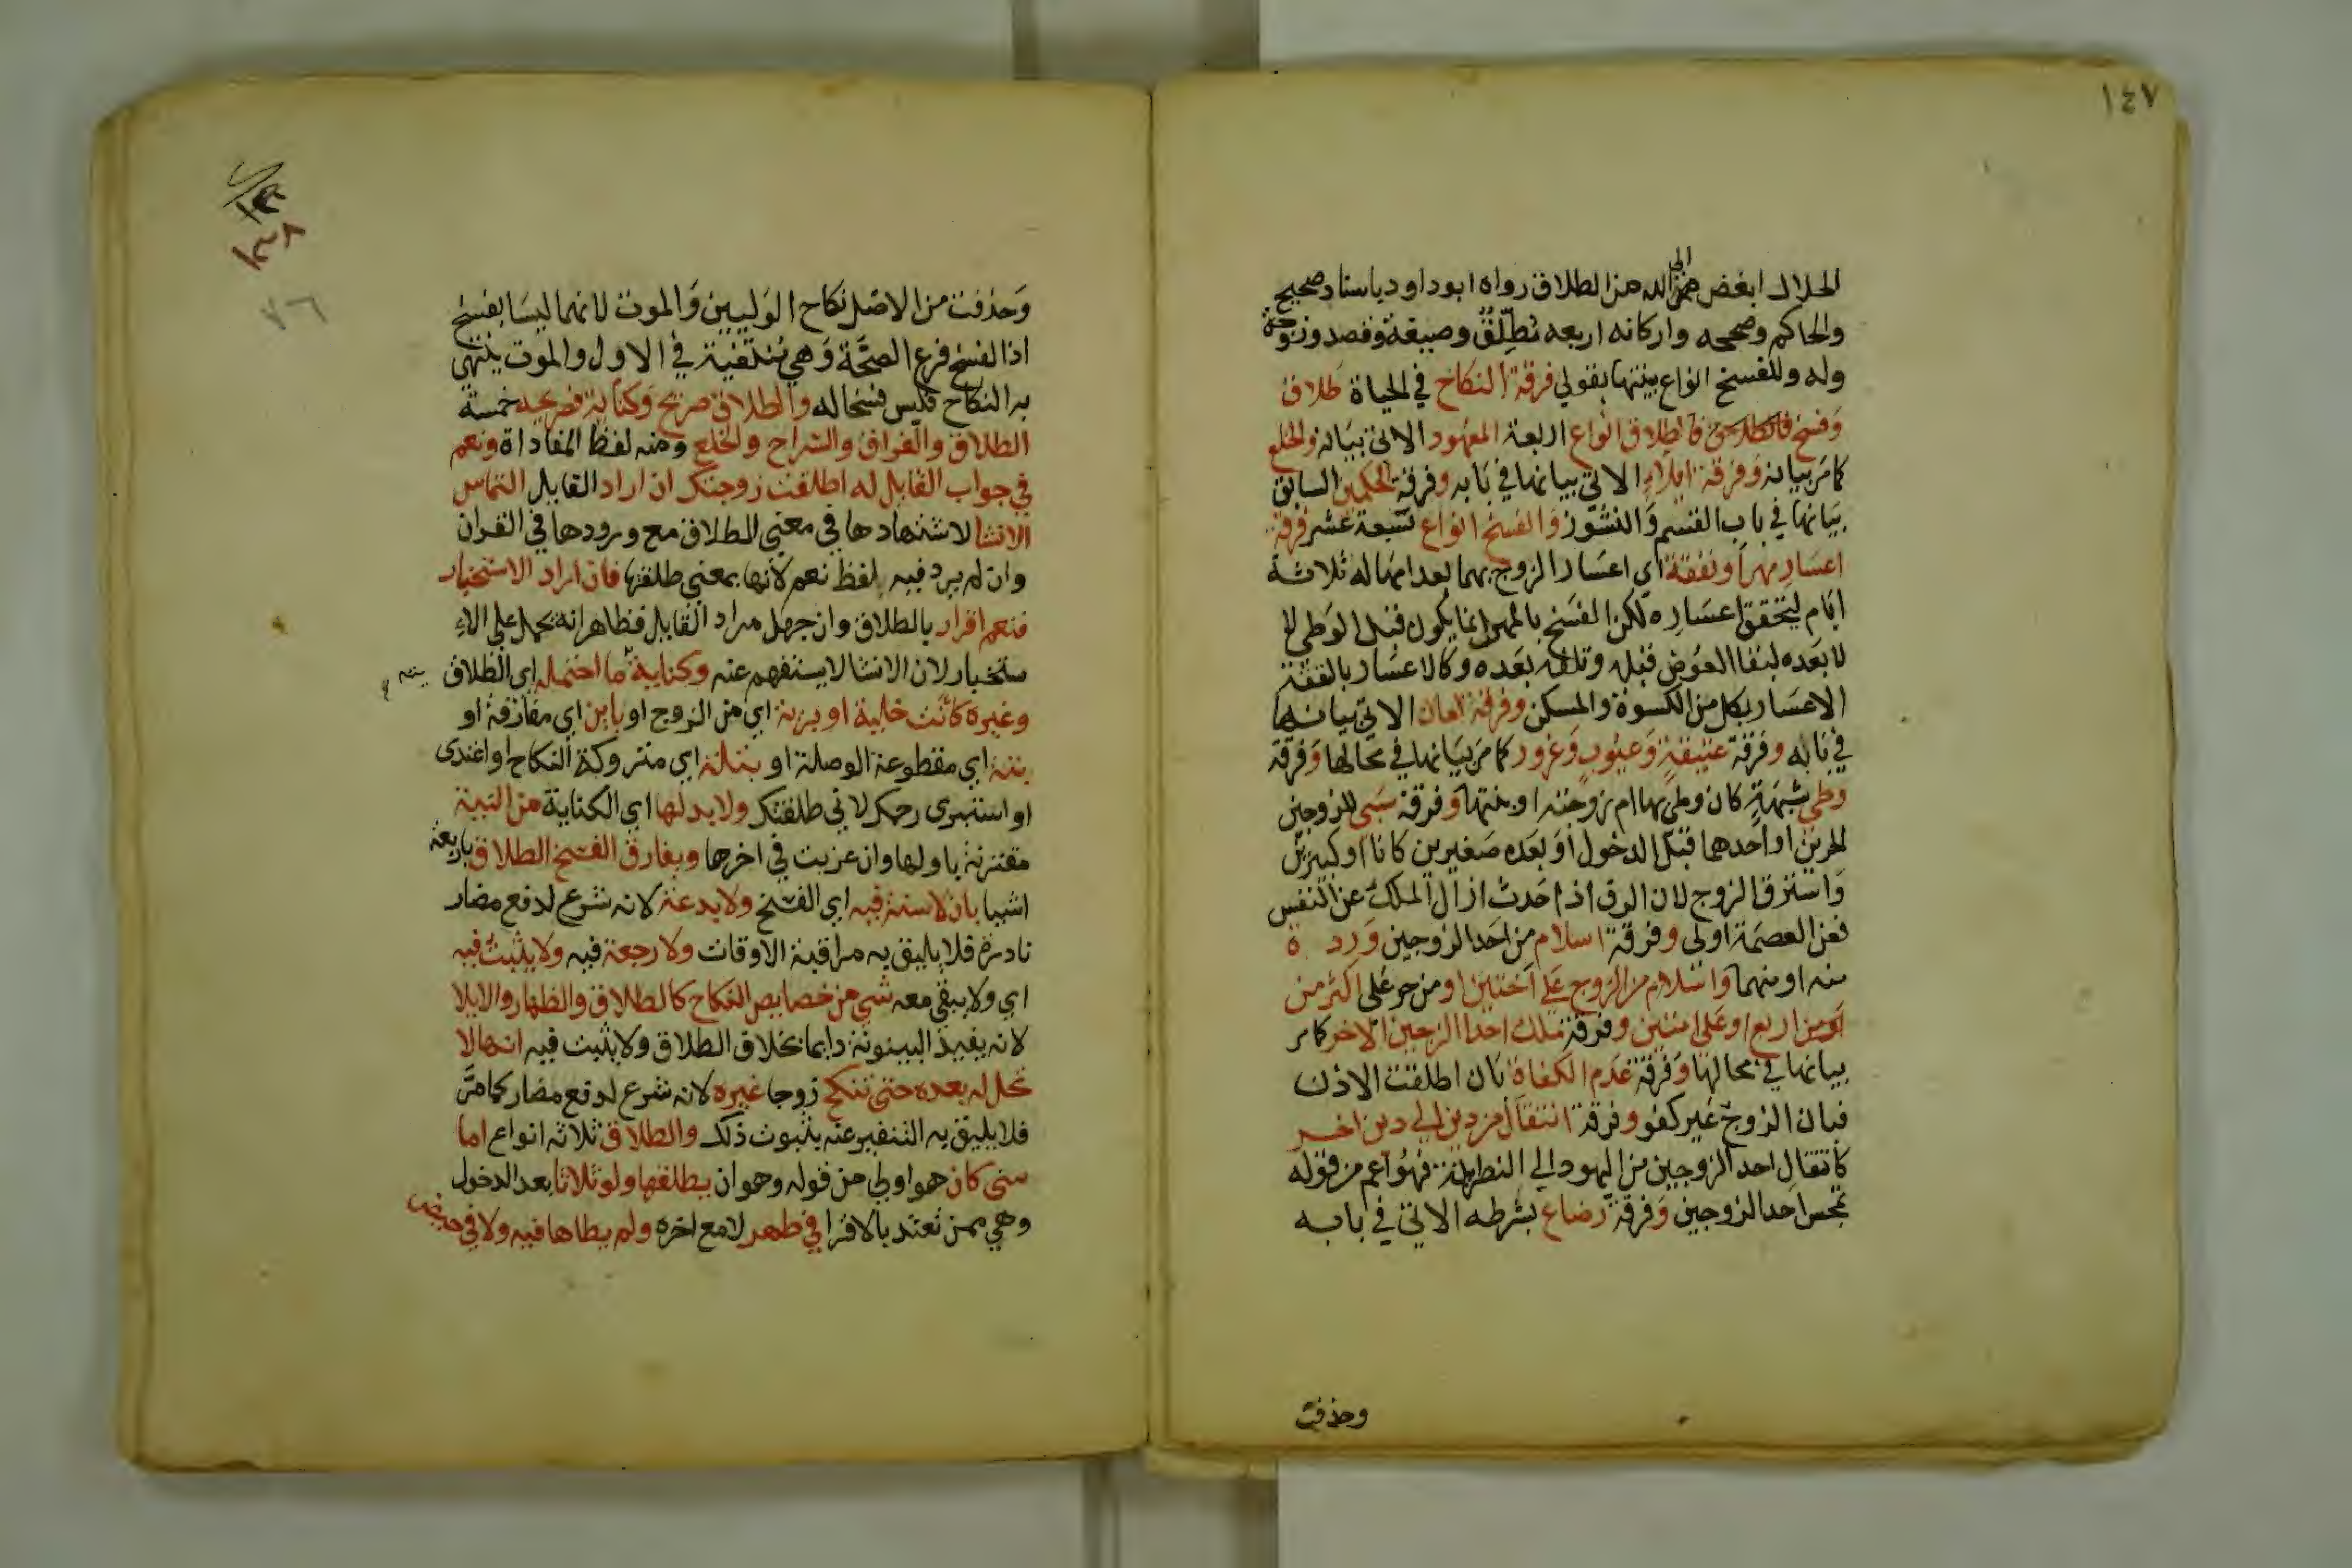 ١٤٧
الحلال ابغض الى الله من الطلاق رواه ابوداود باسناد صحيح
والحاكم وصححه واركانه اربعه تطليق وصيغة وقصد وزوجة
وله وللفسخ انواع بينتها بقولي فرقة النكاح في الحياة طلاق
وفسخ فالطلاق انواع اربعة المعهود الاتي بيانه والخلع
كما مر بيانه وفرقة ايلاء الاتي بيانها في بابه وفرقة الحكمين السابق
بيانها في باب القسم والنشوز والفسخ انواع سبعة عشر فرقة
اعسار مهر او نفقة اي اعسار الزوج بهما بعد امهاله ثلاثة
ايام ليتحقق اعساره لكن الفسخ بالمهر انما يكون قبل الوطي لا
لا بعده لبقا العوض قبله وتلفه بعده وكالاعسار بالنفقة
الاعسار بكل من الكسوة والمسكن وفرقة لعان الاتي بيانها
في بابه وفرقة عتيقة وعيوب وغرور كما مر بيانها في محالها وفرقة
وطي شبهة كان وطى بها ام زوجته او بنتها وفرقة سبي للزوجين
الحرين او احدهما قبل الدخول او بعده صغيرين كانا او كبيرين
واسترق الزوج لان الرق اذا حدث ازال الملك عن النفس
فعن العصمة اولى وفرقة اسلام من احد الزوجين وردة
منه او منهما واسلام من الزوج على اختين او من حر على اكثر من
او من اربع او على امتين وفرقة ملك احد الزوجين الاخر كما مر
بيانها في محالها وفرقة عدم الكفاة بان اطلقت الاذن
فبان الزوج غير كفو وفرقة انتقال من دين الى دين اخر
كانتقال احد الزوجين من اليهود الى النصرانية فهو اعم من قوله
تمجس احد الزوجين وفرقة رضاع بشرطه الاتي في بابه
وحذفت
١٣٨
٧٦
وحذفت من الاصل نكاح الوليين والموت لانهما ليسا بفسخ
اذ الفسخ فرع الصحة وهي منتفية في الاول والموت ينتهي
به النكاح فليس فسخا له والطلاق صريح وكناية فصريحه خمسة
الطلاق والفراق والسراح والخلع ومنه لفظ المفاداة ونعم
في جواب القايل له اطلقت زوجتك ان اراد القايل التماس
الانشا لاشتهادها في معني الطلاق مع ورودها في القران
وان لم يرد فيه لفظ نعم لانها بمعني طلقتها فان اراد الاستخبار
فنعم اقرار بالطلاق وان جهل مراد القايل فظاهر انه يحمل على الا
ستخبار لان الانشا لا يستفهم عنه وكناية ما احتمله اي الطلاق
وغيره كانت خلية او برية اي من الزوج او باين اي مفارقة او
بتة اي مقطوعة الوصلة او بتلة اي متروكة النكاح او اعتدى
او استبرى رحمك لاني طلقتك ولا بد لها اي الكناية من النية
مقترنة باولها وان عزبت في اخرها ويفارق الفسخ الطلاق باربعة
اشيا بان لا سنة فيه اي الفسخ ولا بدعة لانه شرع لدفع مضار
نادرة فلا يليق به مراقبة الاوقات ولا رجعة فيه ولا يثبت فيه
اي ولا يبقي معه شي من خصايص النكاح كالطلاق والظهار والايلا
لانه يفيد البينونة دايما بخلاق الطلاق ولا يثبت فيه انها لا
تحل له بعده حتى تنكح زوجا غيره لانه شرع لدفع مضار كما مر
فلا يليق به التنفير عنه بثبوت ذلك والطلاق ثلاثه انواع اما
سنى كان هو اولى من قوله وهو ان يطلقها ولو ثلاثا بعد الدخول
وهي ممن تعتد بالاقرا في طهر لا مع اخره ولم يطاها فيه ولا في حيض